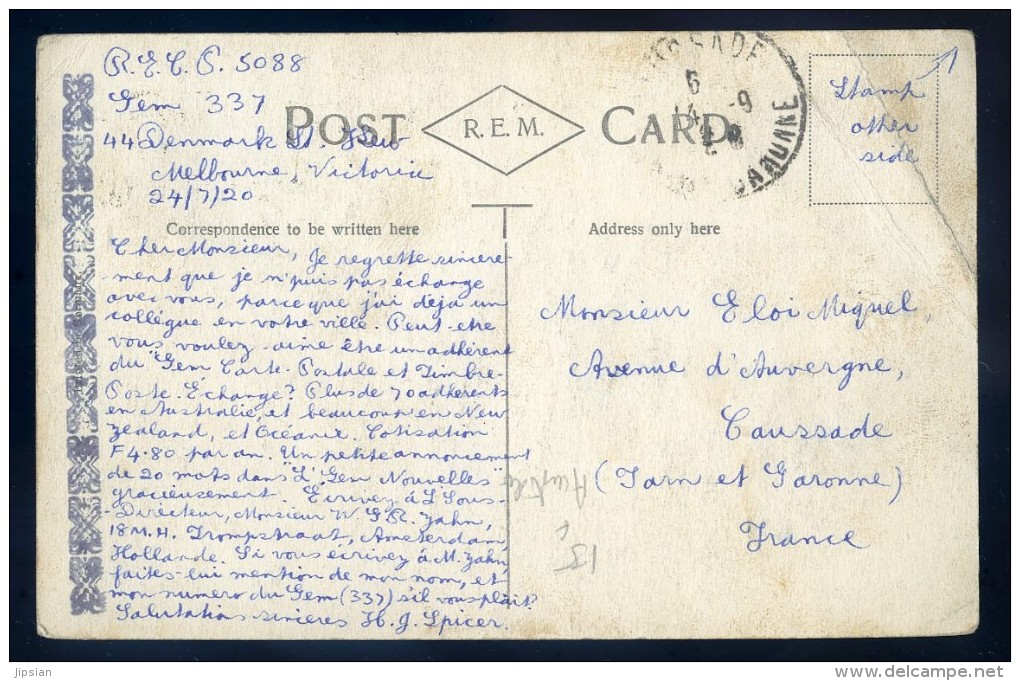 R.E.C.P. 5088
Gem 337
44 Denmark St. Kew
Melbourne, Victoria
24/7/20
POST CARD
R.E.M.
CAUSSADE
5
14 - 9
GARONNE
Stamp
other
side
Correspondence to be written here
Address only here
Cher Monsieur, Je regrette sincere-
-ment que je n'puis pas échange
avec vous, parce que j'ai déja un
collégue en votre ville. Peut-etre
vous voulez aime être un adhérent
du "Gem Carte-Postale et Timbre-
Poste. Échange? Plus de 70 adhérents
en Australie, et beaucoup en New
Zealand, et Océanie. Cotisation
F4.80 par an. Un petite annoncement
de 20 mots dans "L'Gem Nouvelles"
gracieusement. Ecrivez á L'Sous-
-Directeur, Monsieur W. G. R. Zahn,
18 M.H. Trompstraat, Amsterdam,
Hollande. Si vous écrivez á M. Zahn,
faites-lui mention de mon nom, et
mon numero du Gem (337) s'il vous plait?
Salutations sinieres H. J. Spicer.
Monsieur Eloi Miquel,
Avenue d'Auvergne,
Caussade
(Tarn et Garonne)
France
jipsian
delcampe.net